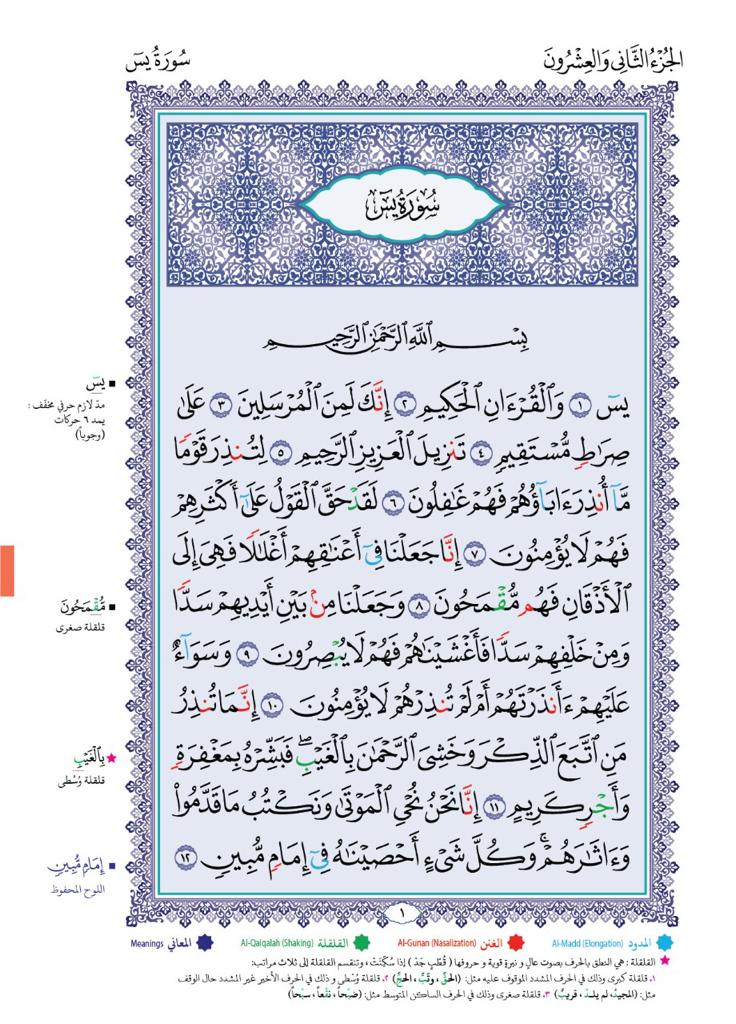 الجُزْءُ الثَّانِى وَالعِشْرُونَ
سُورَةُ يسٓ
سُورَةُ يسٓ
بِسْمِ اللَّهِ الرَّحْمَٰنِ الرَّحِيمِ
يسٓ ١ وَالْقُرْءَانِ الْحَكِيمِ ٢ إِنَّكَ لَمِنَ الْمُرْسَلِينَ ٣ عَلَىٰ
صِرَاطٍ مُّسْتَقِيمٍ ٤ تَنزِيلَ الْعَزِيزِ الرَّحِيمِ ٥ لِتُنذِرَ قَوْمًا
مَّآ أُنذِرَ ءَابَآؤُهُمْ فَهُمْ غَٰفِلُونَ ٦ لَقَدْ حَقَّ الْقَوْلُ عَلَىٰٓ أَكْثَرِهِمْ
فَهُمْ لَا يُؤْمِنُونَ ٧ إِنَّا جَعَلْنَا فِىٓ أَعْنَٰقِهِمْ أَغْلَٰلًا فَهِىَ إِلَى
الْأَذْقَانِ فَهُم مُّقْمَحُونَ ٨ وَجَعَلْنَا مِنۢ بَيْنِ أَيْدِيهِمْ سَدًّا
وَمِنْ خَلْفِهِمْ سَدًّا فَأَغْشَيْنَٰهُمْ فَهُمْ لَا يُبْصِرُونَ ٩ وَسَوَآءٌ
عَلَيْهِمْ ءَأَنذَرْتَهُمْ أَمْ لَمْ تُنذِرْهُمْ لَا يُؤْمِنُونَ ١٠ إِنَّمَا تُنذِرُ
مَنِ اتَّبَعَ الذِّكْرَ وَخَشِىَ الرَّحْمَٰنَ بِالْغَيْبِ ۖ فَبَشِّرْهُ بِمَغْفِرَةٍ
وَأَجْرٍ كَرِيمٍ ١١ إِنَّا نَحْنُ نُحْىِ الْمَوْتَىٰ وَنَكْتُبُ مَا قَدَّمُوا۟
وَءَاثَٰرَهُمْ ۚ وَكُلَّ شَىْءٍ أَحْصَيْنَٰهُ فِىٓ إِمَامٍ مُّبِينٍ ١٢
يسٓ
مدّ لازم حرفي مخفّف :
يمد ٦ حركات
(وجوباً)
مُّقْمَحُونَ
قلقلة صغرى
بِالْغَيْبِ
قلقلة وُسْطى
إِمَامٍ مُّبِينٍ
اللوح المحفوظ
١
المدود Al-Madd (Elongation) الغنن Al-Gunan (Nasalization) القلقلة Al-Qalqalah (Shaking) المعاني Meanings
القلقلة : هي النطق بالحرف بصوت عالٍ و نبرةٍ قوية و حروفها ( قُطْبِ جَدْ ) إذا سُكِّنَتْ ، وتنقسم القلقلة إلى ثلاث مراتب:
١. قلقلة كبرى وذلك في الحرف المشدد الموقوف عليه مثل: (الحقّ ، وتبّ ، الحجّ) ٢. قلقلة وُسْطى و ذلك في الحرف الأخير غير المشدد حال الوقف
مثل: (المجيدْ، لم يلدْ، قريبْ) ٣. قلقلة صغرى وذلك في الحرف الساكن المتوسط مثل: (ضَبْحاً ، نقْعاً ، سبْحاً)